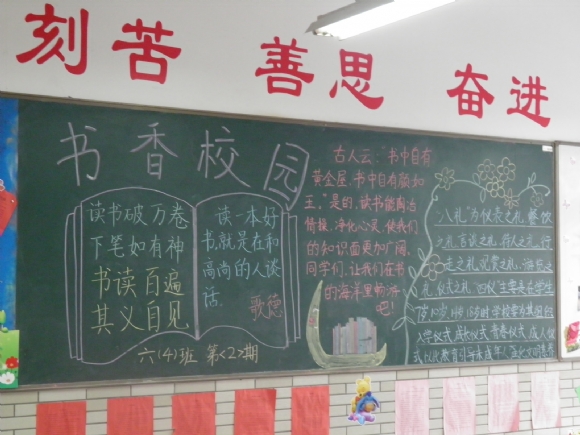 刻苦 善思 奋进
书香校园
读书破万卷
下笔如有神
书读百遍
其义自见
读一本好
书,就是在和
高尚的人谈
话.
歌德
六(4)班 第<2>期
古人云:"书中自有
黄金屋.书中自有颜如
玉。"是的,读书能陶冶
情操,净化心灵,使我们
的知识面更加广阔,
同学们,让我们在书
的海洋里畅游
吧!
"八礼"为仪表之礼,餐饮
之礼,言谈之礼,待人之礼,行
走之礼,观赏之礼,游览之
礼,仪式之礼."四仪"主要是在学生
7岁,10岁,14岁,18岁时学校
入学仪式,成长仪式,青春仪式,成人仪
式